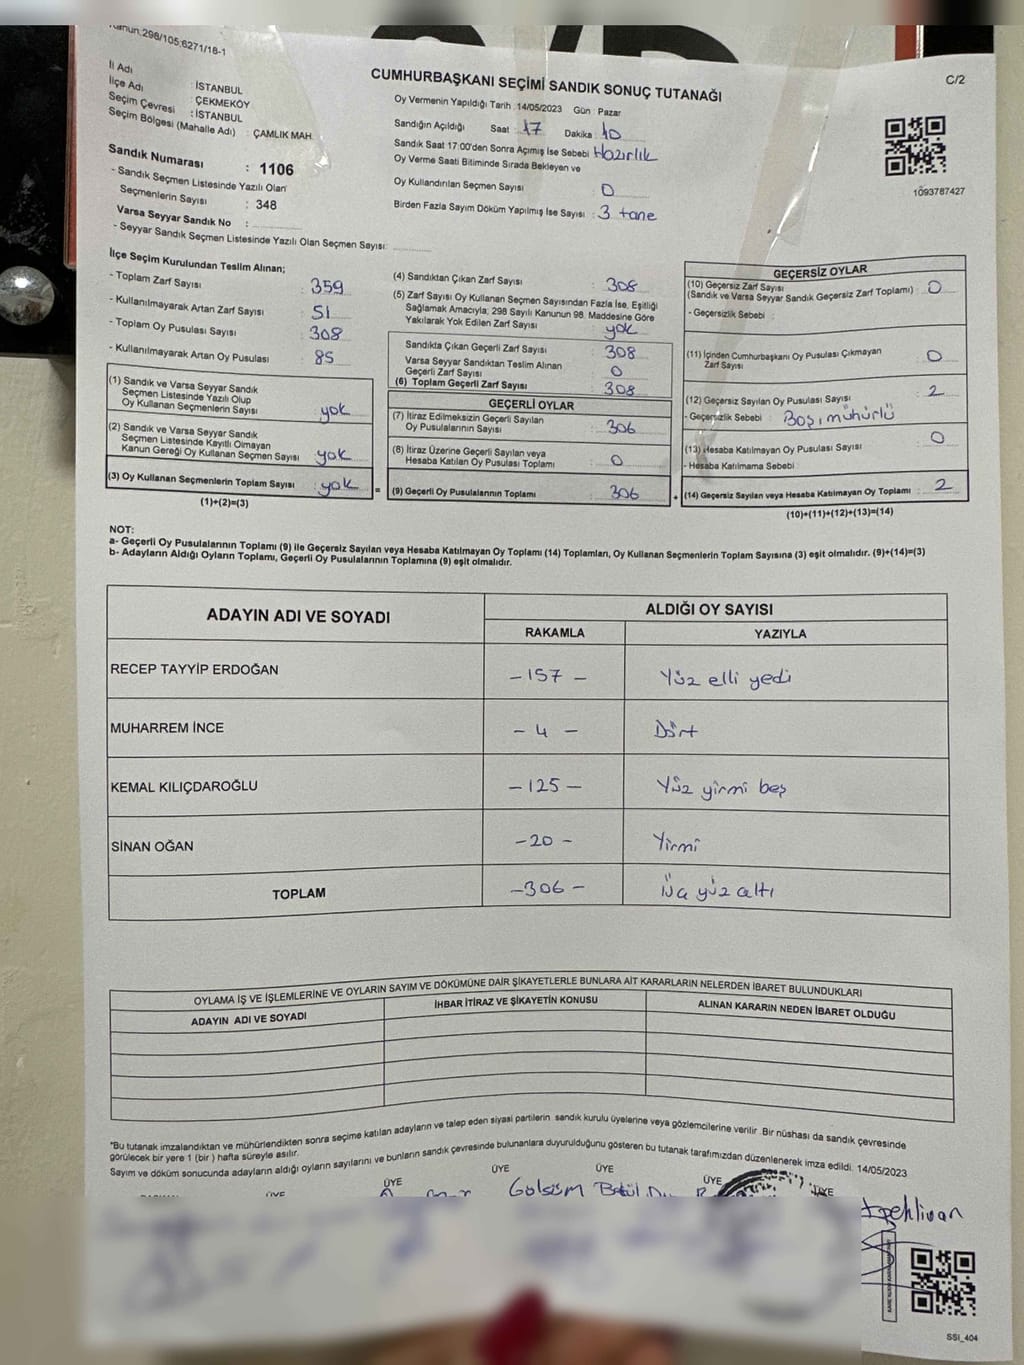 Kanun:298/105,6271/18-1
C/2
CUMHURBAŞKANI SEÇİMİ SANDIK SONUÇ TUTANAĞI
İl Adı : İSTANBUL
İlçe Adı : ÇEKMEKÖY
Seçim Çevresi : İSTANBUL
Seçim Bölgesi (Mahalle Adı) : ÇAMLIK MAH.
Sandık Numarası : 1106
- Sandık Seçmen Listesinde Yazılı Olan
Seçmenlerin Sayısı : 348
Varsa Seyyar Sandık No :
- Seyyar Sandık Seçmen Listesinde Yazılı Olan Seçmen Sayısı:
Oy Vermenin Yapıldığı Tarih :14/05/2023 Gün : Pazar
Sandığın Açıldığı Saat : 17 Dakika : 10
Sandık Saat 17:00'den Sonra Açımış İse Sebebi : Hazırlık
Oy Verme Saati Bitiminde Sırada Bekleyen ve
Oy Kullandırılan Seçmen Sayısı : 0
Birden Fazla Sayım Döküm Yapılmış İse Sayısı : 3 tane
1093787427
İlçe Seçim Kurulundan Teslim Alınan;
- Toplam Zarf Sayısı : 359
- Kullanılmayarak Artan Zarf Sayısı : 51
- Toplam Oy Pusulası Sayısı : 308
- Kullanılmayarak Artan Oy Pusulası : 85
(1) Sandık ve Varsa Seyyar Sandık
Seçmen Listesinde Yazılı Olup
Oy Kullanan Seçmenlerin Sayısı : yok
(2) Sandık ve Varsa Seyyar Sandık
Seçmen Listesinde Kayıtlı Olmayan
Kanun Gereği Oy Kullanan Seçmen Sayısı : yok
(3) Oy Kullanan Seçmenlerin Toplam Sayısı : yok =
(1)+(2)=(3)
(4) Sandıktan Çıkan Zarf Sayısı : 308
(5) Zarf Sayısı Oy Kullanan Seçmen Sayısından Fazla İse, Eşitliği
Sağlamak Amacıyla; 298 Sayılı Kanunun 98. Maddesine Göre
Yakılarak Yok Edilen Zarf Sayısı : yok
Sandıkta Çıkan Geçerli Zarf Sayısı : 308
Varsa Seyyar Sandıktan Teslim Alınan
Geçerli Zarf Sayısı : 0
(6) Toplam Geçerli Zarf Sayısı : 308
GEÇERLİ OYLAR
(7) İtiraz Edilmeksizin Geçerli Sayılan
Oy Pusulalarının Sayısı : 306
(8) İtiraz Üzerine Geçerli Sayılan veya
Hesaba Katılan Oy Pusulası Toplamı : 0
(9) Geçerli Oy Pusulalarının Toplamı : 306 +
GEÇERSİZ OYLAR
(10) Geçersiz Zarf Sayısı
(Sandık ve Varsa Seyyar Sandık Geçersiz Zarf Toplamı) : 0
- Geçersizlik Sebebi :
(11) İçinden Cumhurbaşkanı Oy Pusulası Çıkmayan
Zarf Sayısı : 0
(12) Geçersiz Sayılan Oy Pusulası Sayısı : 2
- Geçersizlik Sebebi : Boş, mühürlü
(13) Hesaba Katılmayan Oy Pusulası Sayısı : 0
- Hesaba Katılmama Sebebi
(14) Geçersiz Sayılan veya Hesaba Katılmayan Oy Toplamı : 2
(10)+(11)+(12)+(13)=(14)
NOT:
a- Geçerli Oy Pusulalarının Toplamı (9) ile Geçersiz Sayılan veya Hesaba Katılmayan Oy Toplamı (14) Toplamları, Oy Kullanan Seçmenlerin Toplam Sayısına (3) eşit olmalıdır. (9)+(14)=(3)
b- Adayların Aldığı Oyların Toplamı, Geçerli Oy Pusulalarının Toplamına (9) eşit olmalıdır.
ADAYIN ADI VE SOYADI ALDIĞI OY SAYISI
RAKAMLA YAZIYLA
RECEP TAYYİP ERDOĞAN -157- Yüz elli yedi
MUHARREM İNCE -4- Dört
KEMAL KILIÇDAROĞLU -125- Yüz yirmi beş
SİNAN OĞAN -20- Yirmi
TOPLAM -306- Üç yüz altı
OYLAMA İŞ VE İŞLEMLERİNE VE OYLARIN SAYIM VE DÖKÜMÜNE DAİR ŞİKAYETLERLE BUNLARA AİT KARARLARIN NELERDEN İBARET BULUNDUKLARI
ADAYIN ADI VE SOYADI İHBAR İTİRAZ VE ŞİKAYETİN KONUSU ALINAN KARARIN NEDEN İBARET OLDUĞU
*Bu tutanak imzalandıktan ve mühürlendikten sonra seçime katılan adayların ve talep eden siyasi partilerin sandık kurulu üyelerine veya gözlemcilerine verilir. Bir nüshası da sandık çevresinde
görülecek bir yere 1 (bir ) hafta süreyle asılır.
Sayım ve döküm sonucunda adayların aldığı oyların sayılarını ve bunların sandık çevresinde bulunanlara duyurulduğunu gösteren bu tutanak tarafımızdan düzenlenerek imza edildi. 14/05/2023
ÜYE ÜYE ÜYE ÜYE ÜYE ÜYE
Gülsüm Betül
pehlivan
SSI_404